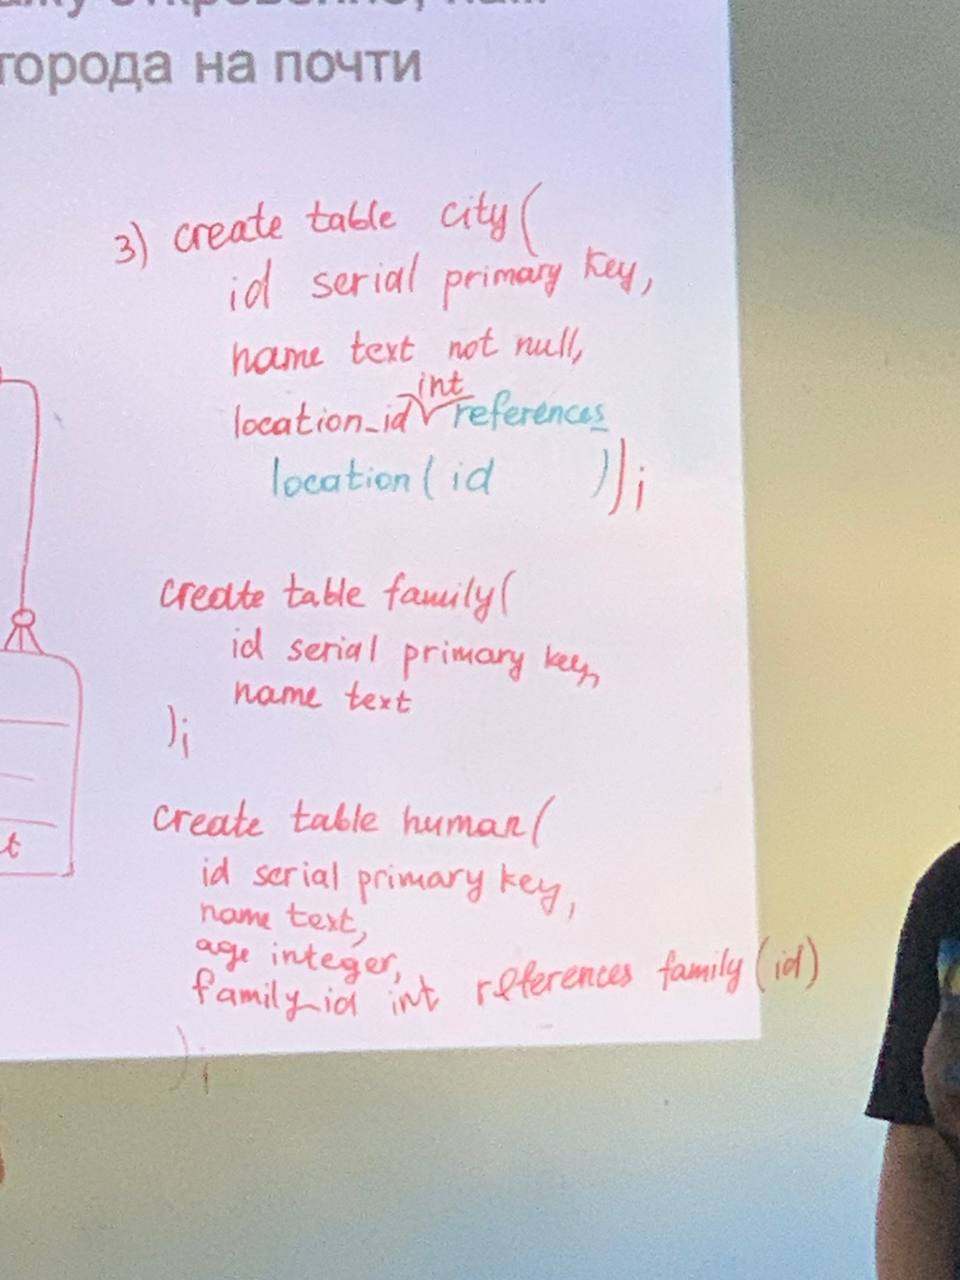 города на почти
3) create table city(
id serial primary key,
name text not null,
int
location_id references
location(id ));
create table family(
id serial primary key,
name text
);
create table human(
id serial primary key,
name text,
age integer,
family_id int references family(id)
);
t